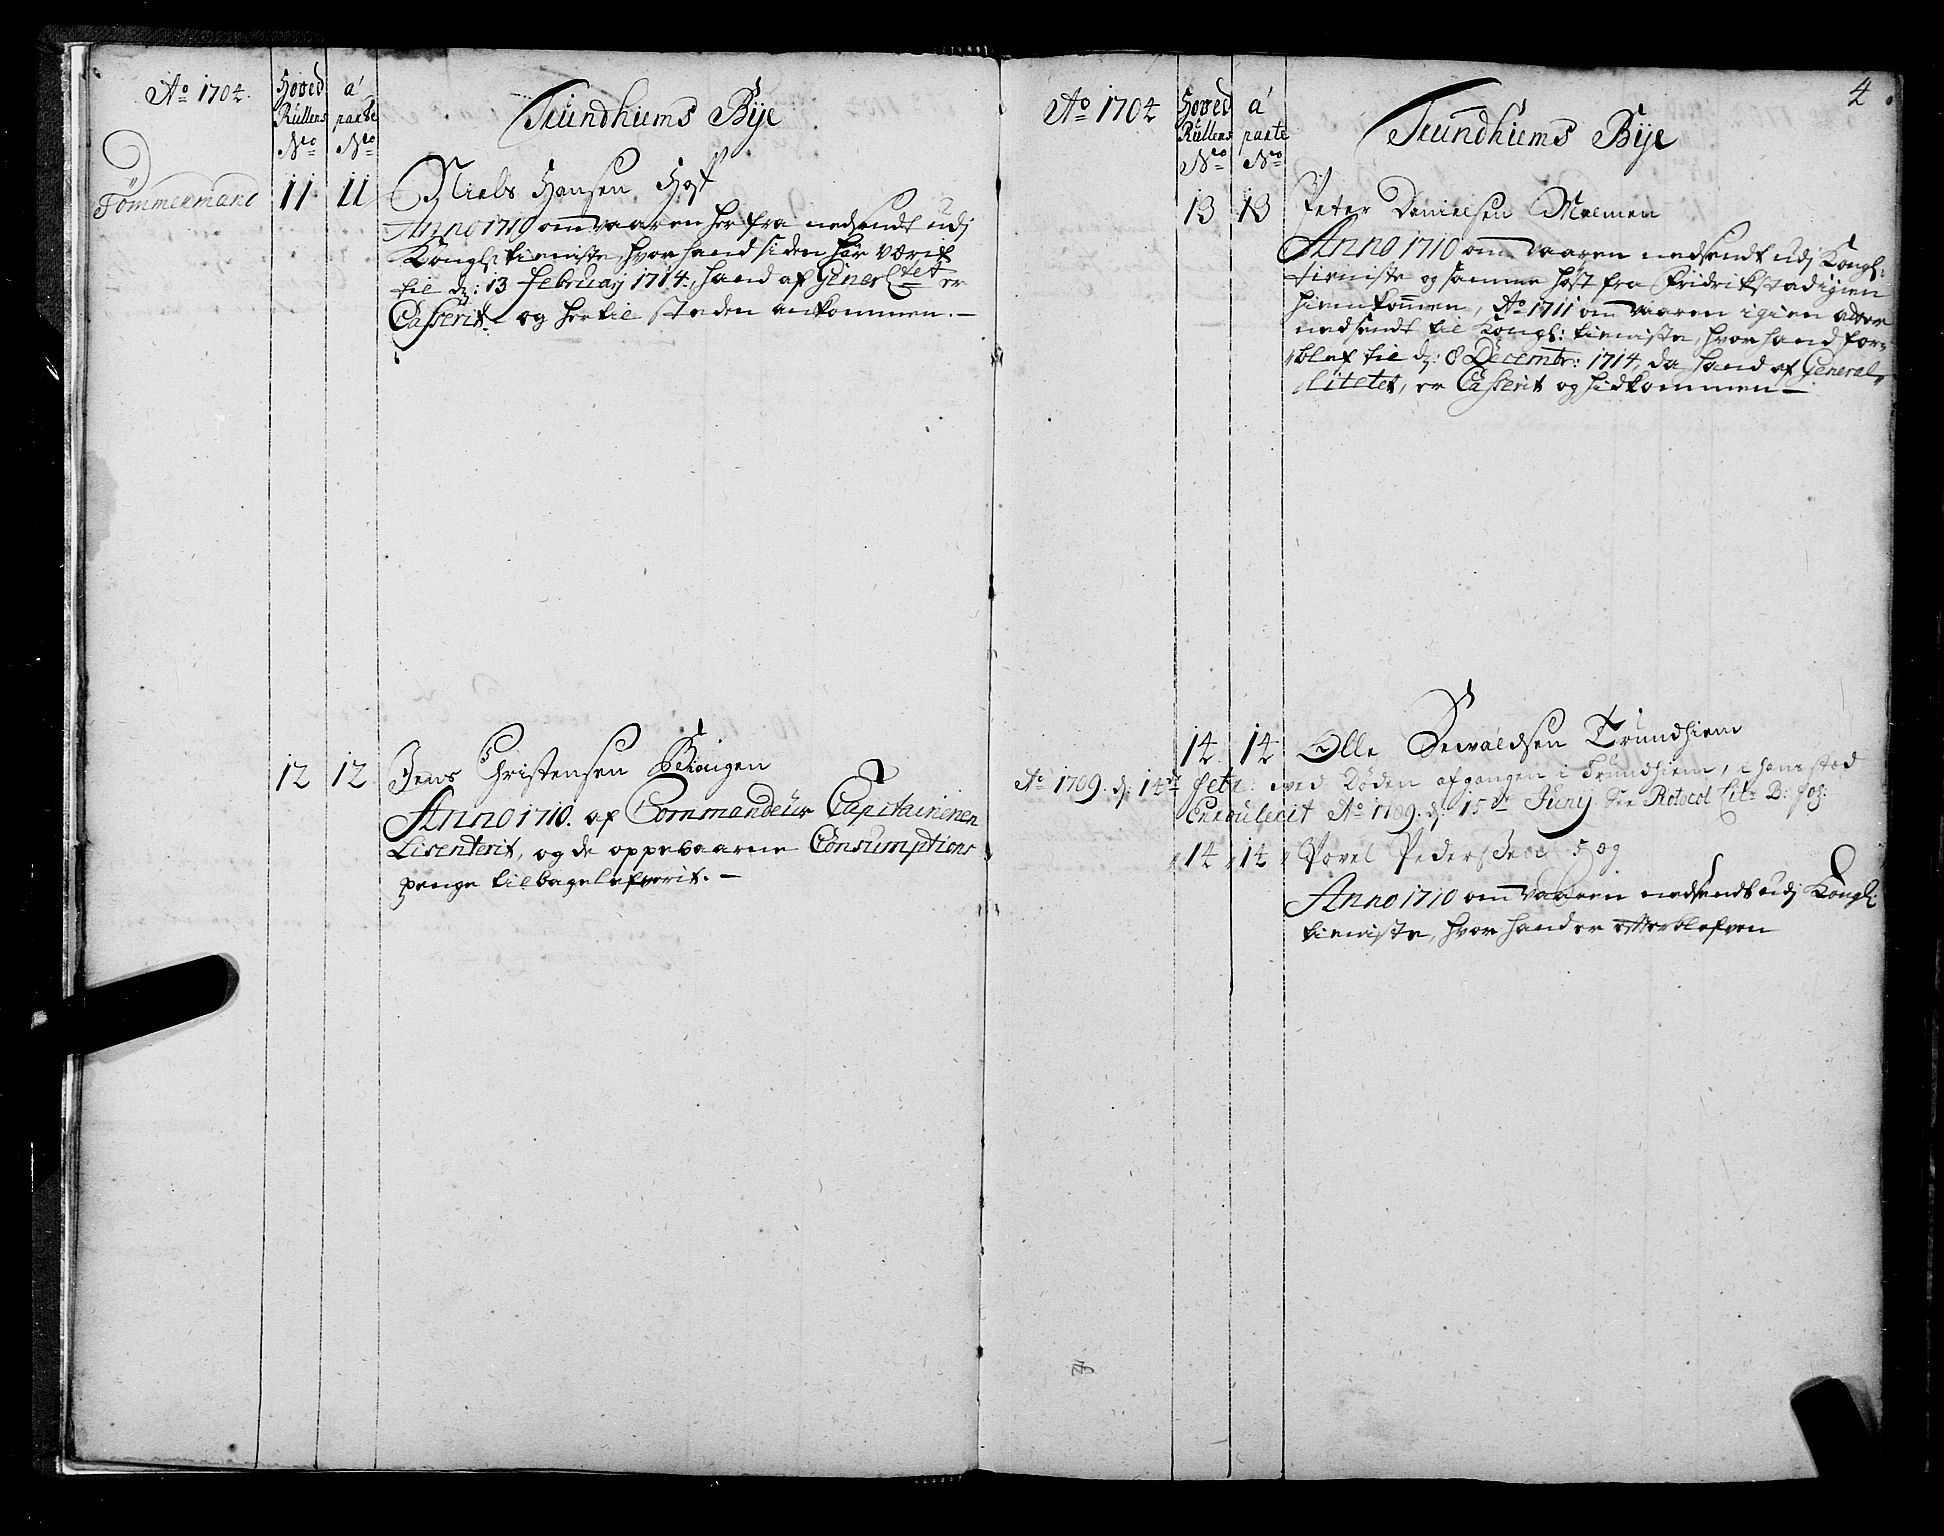 Ao 1704.
Hoved Rullens No
a' parte No
Trundhiems Bÿe
Tömmermand
11 11 Niels Hansen Hof
Anno 1710 om Vaaren her fra nedsendt udj
Kongl: tieniste, hvor hand siden har værit
til d: 13 February 1714, hand af Generltet er
Casserit og her til steden ankommen. –
12 12 Jens Christensen
Anno 1710. af Commandeur Capitainenen
Lisenterit, og de oppebaarne Consumptions
penge tilbagelefverit. –
4
Ao 1704
Hoved Rullens No
a' parte No
Trundhiems Bÿe
13 13 Peter Danielsen
Anno 1710 om Vaaren nedsendt udj Kongl:
tieniste og samme høst fra Fridrikstad igien
hiemkommen, Ao 1711 om Vaaren igien
nedsendt til Kongl: tieniste, hvor hand for-
blef til d: 8 Decembr: 1714, da hand af General-
litetet, er Casserit og hidkommen –
14 14 Olle Sewaldsen Trundhiem
Ao 1709. d: 14de febr: ved Døden afgangen i Trundhiem, i hans sted
Enroulerit Ao 1709. d: 15de Junij See Protocol Litr B: fog:
14 14 Povel Pedersen
Anno 1710 om Vaaren nedsendt udj Kongl:
tieniste, hvor hand er efterblefven